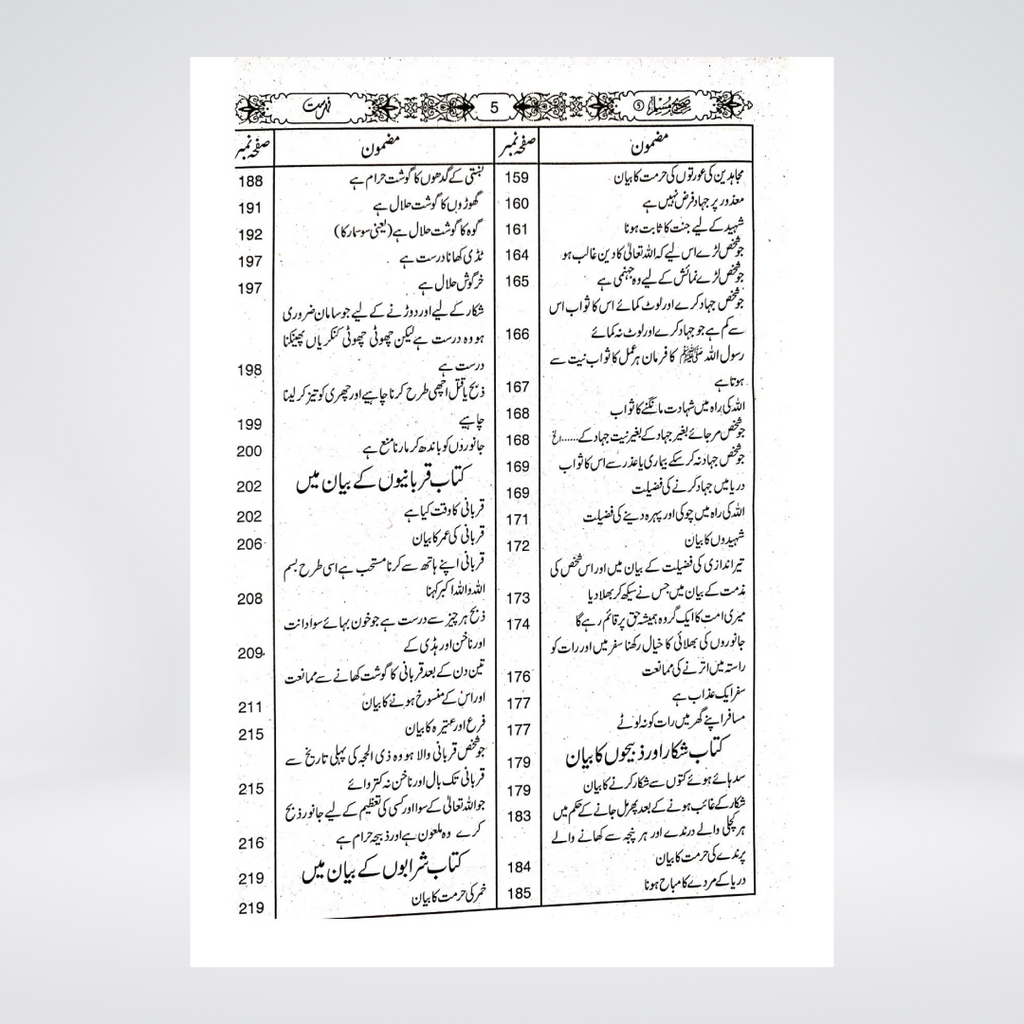 صحیح مسلم ⑤
5
فہرست
مضمون صفحہ نمبر
مجاہدین کی عورتوں کی حرمت کا بیان 159
معذور پر جہاد فرض نہیں ہے 160
شہید کے لیے جنت کا ثابت ہونا 161
جو شخص لڑے اس لیے کہ اللہ تعالیٰ کا دین غالب ہو 164
جو شخص لڑے نمائش کے لیے وہ جہنمی ہے 165
جو شخص جہاد کرے اور لوٹ کمائے اس کا ثواب اس
سے کم ہے جو جہاد کرے اور لوٹ نہ کمائے 166
رسول اللہ ﷺ کا فرمان ہر عمل کا ثواب نیت سے
ہوتا ہے 167
اللہ کی راہ میں شہادت مانگنے کا ثواب 168
جو شخص مر جائے بغیر جہاد کے بغیر نیت جہاد کے......الخ 168
جو شخص جہاد نہ کر سکے بیماری یا عذر سے اس کا ثواب 169
دریا میں جہاد کرنے کی فضیلت 169
اللہ کی راہ میں چوکی اور پہرہ دینے کی فضیلت 171
شہیدوں کا بیان 172
تیر اندازی کی فضیلت کے بیان میں اور اس شخص کی
مذمت کے بیان میں جس نے سیکھ کر بھلا دیا 173
میری امت کا ایک گروہ ہمیشہ حق پر قائم رہے گا 174
جانوروں کی بھلائی کا خیال رکھنا سفر میں اور رات کو
راستہ میں اترنے کی ممانعت 176
سفر ایک عذاب ہے 177
مسافر اپنے گھر میں رات کو نہ لوٹے 177
کتاب شکار اور ذبیحوں کا بیان 179
سدہائے ہوئے کتوں سے شکار کرنے کا بیان 179
شکار کے غائب ہونے کے بعد پھر مل جانے کے حکم میں 183
ہر کچلی والے درندے اور ہر پنجہ سے کھانے والے
پرندے کی حرمت کا بیان 184
دریا کے مردے کا مباح ہونا 185
مضمون صفحہ نمبر
بستی کے گدھوں کا گوشت حرام ہے 188
گھوڑوں کا گوشت حلال ہے 191
گوہ کا گوشت حلال ہے (یعنی سوسمار کا) 192
ٹڈی کھانا درست ہے 197
خرگوش حلال ہے 197
شکار کے لیے اور دوڑنے کے لیے جو سامان ضروری
ہو وہ درست ہے لیکن چھوٹی چھوٹی کنکریاں پھینکنا
درست ہے 198
ذبح یا قتل اچھی طرح کرنا چاہیے اور چھری کو تیز کر لینا
چاہیے 199
جانوروں کو باندھ کر مارنا منع ہے 200
کتاب قربانیوں کے بیان میں 202
قربانی کا وقت کیا ہے 202
قربانی کی عمر کا بیان 206
قربانی اپنے ہاتھ سے کرنا مستحب ہے اسی طرح بسم
اللہ واللہ اکبر کہنا 208
ذبح ہر چیز سے درست ہے جو خون بہائے سوا دانت
اور ناخن اور ہڈی کے 209
تین دن کے بعد قربانی کا گوشت کھانے سے ممانعت
اور اس کے منسوخ ہونے کا بیان 211
فرع اور عتیرہ کا بیان 215
جو شخص قربانی والا ہو وہ ذی الحجہ کی پہلی تاریخ سے
قربانی تک بال اور ناخن نہ کتروائے 215
جو اللہ تعالیٰ کے سوا اور کسی کی تعظیم کے لیے جانور ذبح
کرے وہ ملعون ہے اور ذبیحہ حرام ہے 216
کتاب شرابوں کے بیان میں 219
خمر کی حرمت کا بیان 219